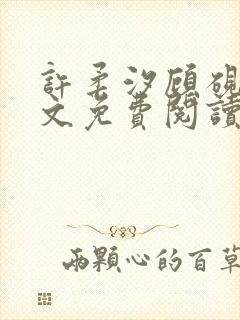 許柔汐顧硯
文免費閱讀
兩顆心的百草